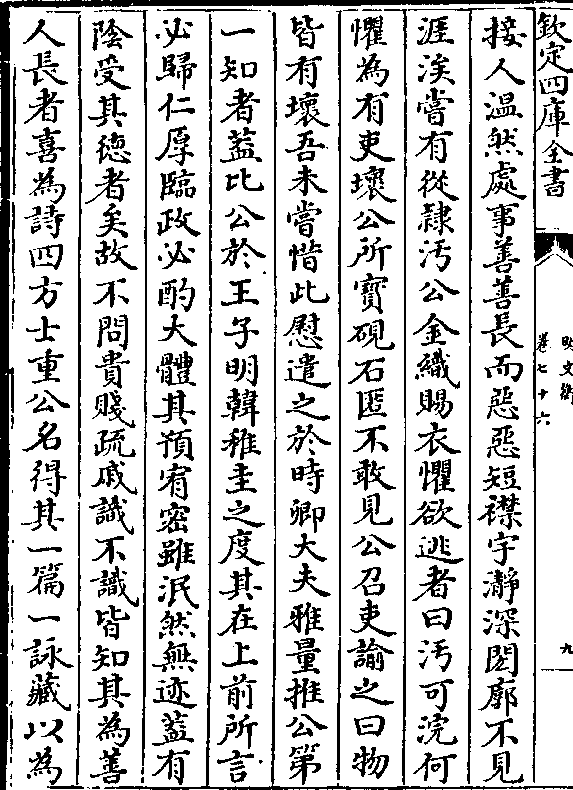 欽定四庫全書
明文衡
卷七十六
九
接人温然處事善善長而惡惡短襟宇瀞深閎廓不見
涯涘嘗有從隸汚公金織賜衣懼欲逃者曰汚可浣何
懼為有吏壞公所寳硯石匿不敢見公召吏諭之曰物
皆有壞吾未嘗惜此慰遣之於時卿大夫雅量推公第
一知者葢比公於王子明韓稚圭之度其在上前所言
必歸仁厚臨政必酌大體其預宥密雖泯然無迹葢有
陰受其徳者矣故不問貴賤疏戚識不識皆知其為善
人長者喜為詩四方士重公名得其一篇一詠藏以為